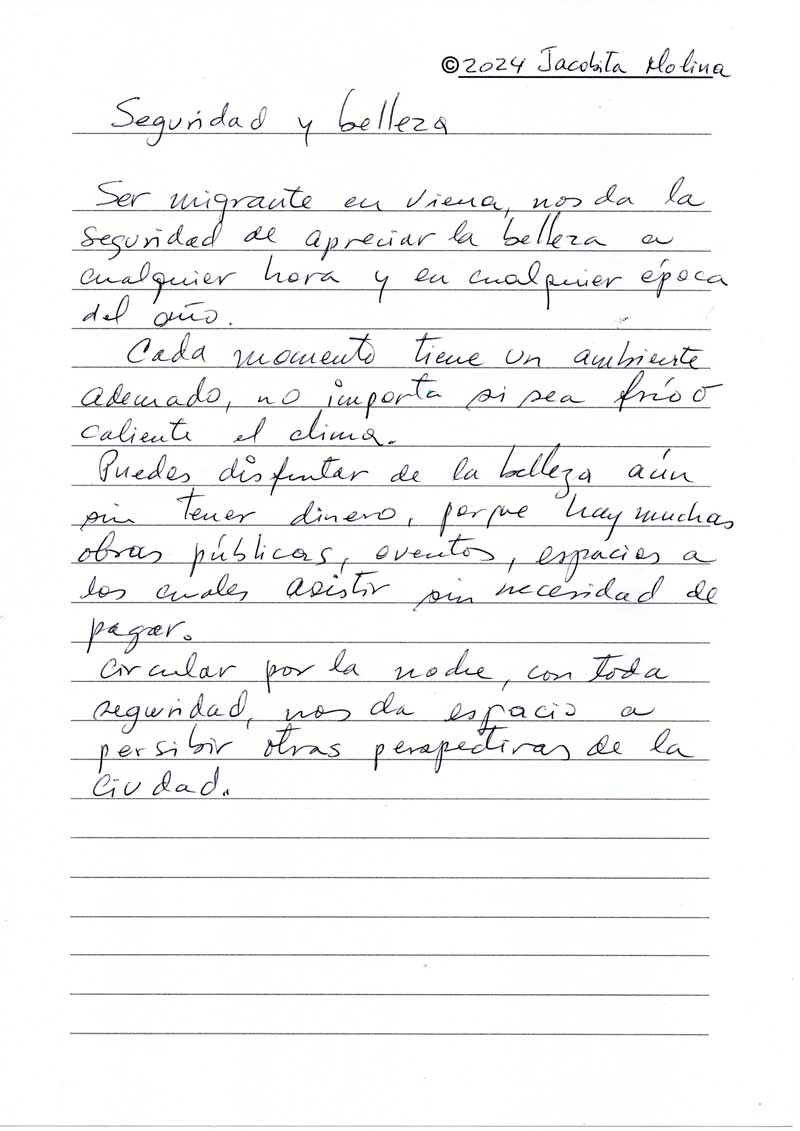 ©2024 Jacobita Molina
Seguridad y belleza
Ser migrante en Viena, nos da la
seguridad de apreciar la belleza a
cualquier hora y en cualquier época
del año.
Cada momento tiene un ambiente
adecuado, no importa si sea frío ó
caliente el clima.
Puedes disfrutar de la belleza aún
sin tener dinero, porque hay muchas
obras públicas, eventos, espacios a
los cuales asistir sin necesidad de
pagar.
Circular por la noche, con toda
seguridad, nos da espacio a
persibir otras perspectivas de la
ciudad.